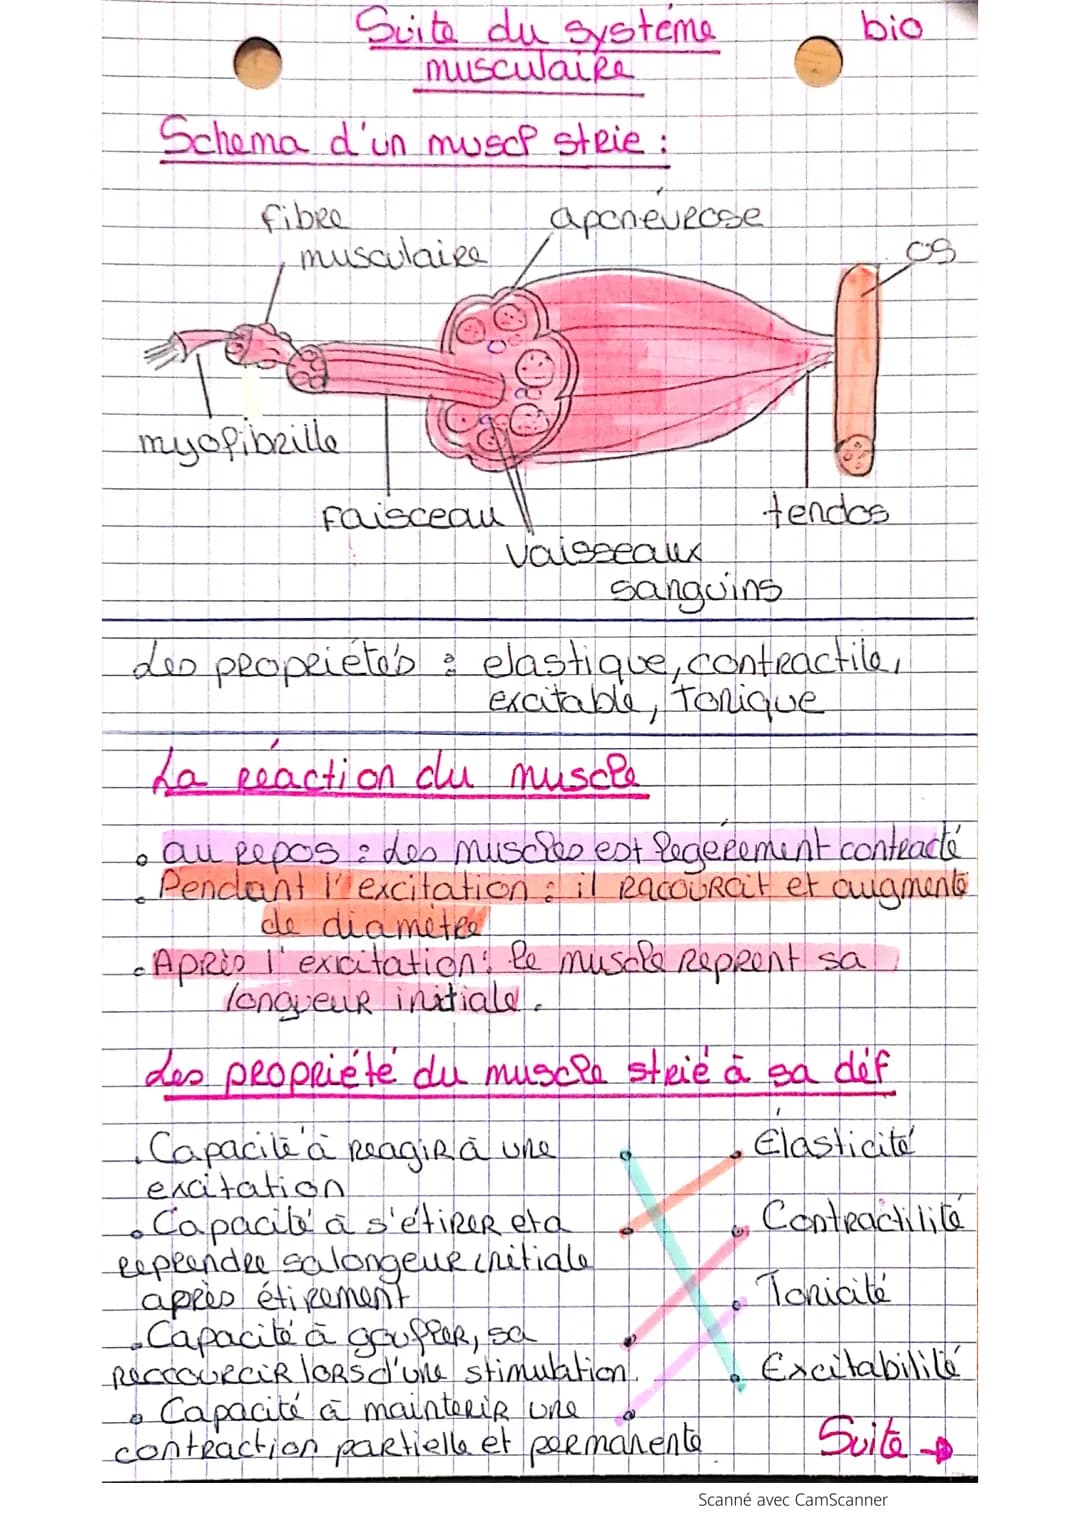 Suite du systéme bio
musculaire
Schema d'un muscl strie :
fibre aponévrose
musculaire os
myofibrille
faisceau tendos
vaisseaux
sanguins
Les propriétés : elastique, contractile,
excitable, tonique
La réaction du muscle
• au repos : des muscles est légérement contracté
• Pendant l'excitation : il racourcit et augmente
de diamétre
• Après l'exicitation : le muscle reprent sa
longueur initiale.
Les propriété du muscle strié à sa déf
• Capacité à reagir à une • Élasticité
excitation
• Capacité à s'étirer et a • Contractilité
reprendre sa longeur initiale
après étirement • Tonicité
• Capacité à gouffler, sa
raccourcir lors d'une stimulation. • Excitabilité
• Capacité à maintenir une
contraction partielle et permanente Suite →
Scanné avec CamScanner